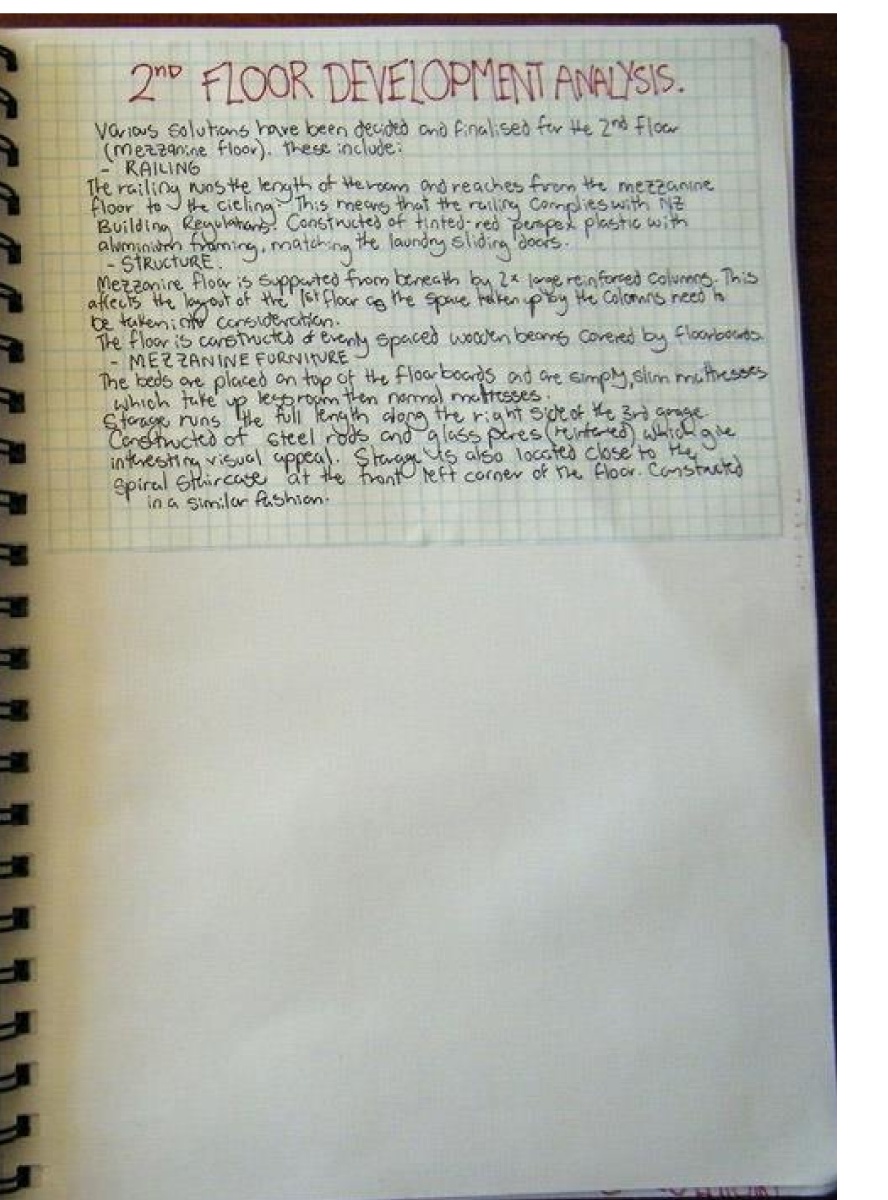 2ND FLOOR DEVELOPMENT ANALYSIS.
Various solutions have been decided and finalised for the 2nd floor
(Mezzanine floor). These include:
- RAILING
The railing runs the length of the room and reaches from the mezzanine
floor to the cieling. This means that the railing complies with NZ
Building Regulations. Constructed of tinted-red perspex plastic with
aluminium framing, matching the laundry sliding doors.
- STRUCTURE.
Mezzanine floor is supported from beneath by 2x large reinforced columns. This
affects the layout of the 1st floor as the space taken up by the columns need to
be taken into consideration.
The floor is constructed of evenly spaced wooden beams covered by floorboards.
- MEZZANINE FURNITURE
The beds are placed on top of the floorboards and are simply, slim mattresses
which take up less room then normal mattresses.
Storage runs the full length along the right side of the 3rd garage.
Constructed of steel rods and glass panes which give
interesting visual appeal. Storage is also located close to the
spiral staircase at the front left corner of the floor. Constructed
in a similar fashion.